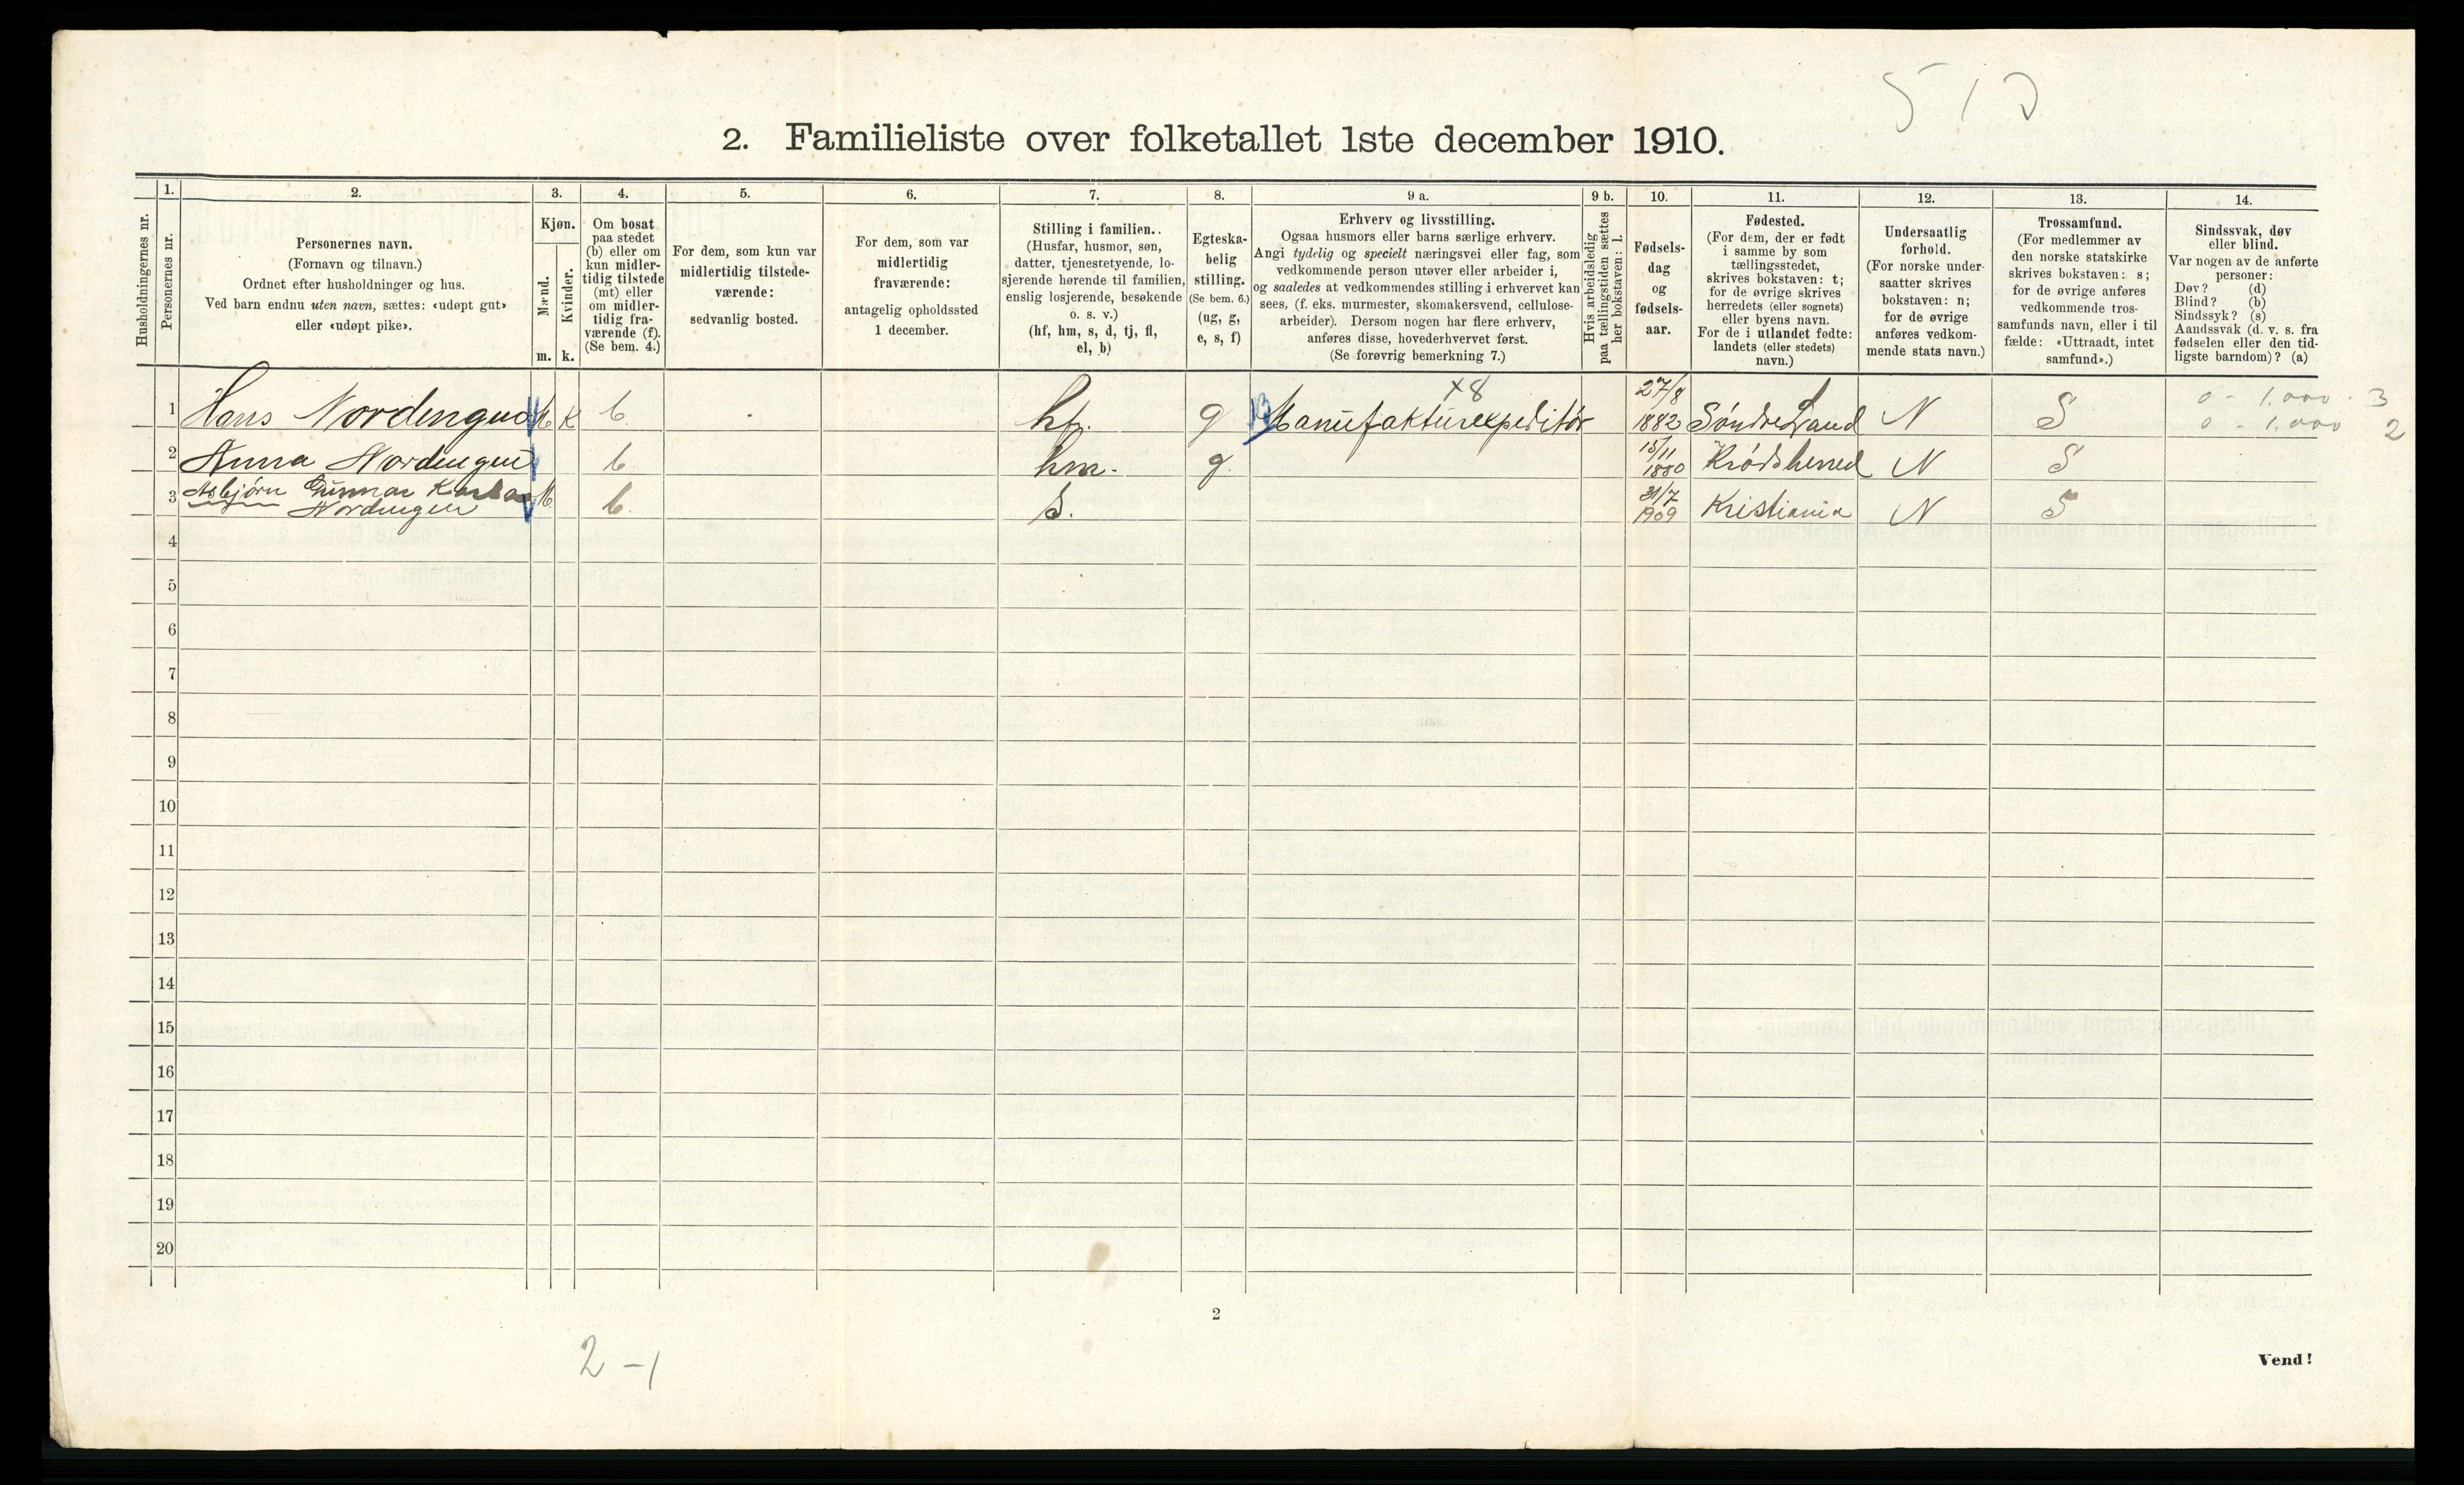 5 1 2
2. Familieliste over folketallet 1ste december 1910.
Husholdningernes nr.
1.
Personernes nr.
2.
Personernes navn.
(Fornavn og tilnavn.)
Ordnet efter husholdninger og hus.
Ved barn endnu uten navn, sættes: «udøpt gut»
eller «udøpt pike».
3.
Kjøn.
Mænd.
Kvinder.
m.
k.
4.
Om bosat
paa stedet
(b) eller om
kun midler-
tidig tilstede
(mt) eller
om midler-
tidig fra-
værende (f).
(Se bem. 4.)
5.
For dem, som kun var
midlertidig tilstede-
værende:
sedvanlig bosted.
6.
For dem, som var
midlertidig
fraværende:
antagelig opholdssted
1 december.
7.
Stilling i familien..
(Husfar, husmor, søn,
datter, tjenestetyende, lo-
sjerende hørende til familien,
enslig losjerende, besøkende
o. s. v.)
(hf, hm, s, d, tj, fl,
el, b)
8.
Egteska-
belig
stilling.
(Se bem. 6.)
(ug, g,
e, s, f)
9 a.
Erhverv og livsstilling.
Ogsaa husmors eller barns særlige erhverv.
Angi tydelig og specielt næringsvei eller fag, som
vedkommende person utøver eller arbeider i,
og saaledes at vedkommendes stilling i erhvervet kan
sees, (f. eks. murmester, skomakersvend, cellulose-
arbeider). Dersom nogen har flere erhverv,
anføres disse, hovederhvervet først.
(Se forøvrig bemerkning 7.)
9 b.
Hvis arbeidsledig
paa tællingstiden sættes
her bokstaven: l.
10.
Fødsels-
dag
og
fødsels-
aar.
11.
Fødested.
(For dem, der er født
i samme by som
tællingsstedet,
skrives bokstaven: t;
for de øvrige skrives
herredets (eller sognets)
eller byens navn.
For de i utlandet fødte:
landets (eller stedets)
navn.)
12.
Undersaatlig
forhold.
(For norske under-
saatter skrives
bokstaven: n;
for de øvrige
anføres vedkom-
mende stats navn.)
13.
Trossamfund.
(For medlemmer av
den norske statskirke
skrives bokstaven: s;
for de øvrige anføres
vedkommende tros-
samfunds navn, eller i til
fælde: «Uttraadt, intet
samfund».)
14.
Sindssvak, døv
eller blind.
Var nogen av de anførte
personer:
Døv? (d)
Blind? (b)
Sindssyk? (s)
Aandssvak (d. v. s. fra
fødselen eller den tid-
ligste barndom)? (a)
1 Hans Nordengen M K b. hf. g Manufakturexpeditør x8 27/8 1882 Søndre Land N S 0 - 1.000 - 3
0 - 1.000 2
2 Anna Nordengen b. hm. g. 15/11 1880 Krødsherred N S
3 Asbjørn Gunnar Karl
Nordengen M b. S. 31/7 1909 Kristiania N S
4
5
6
7
8
9
10
11
12
13
14
15
16
17
18
19
20
2
2 - 1
Vend!